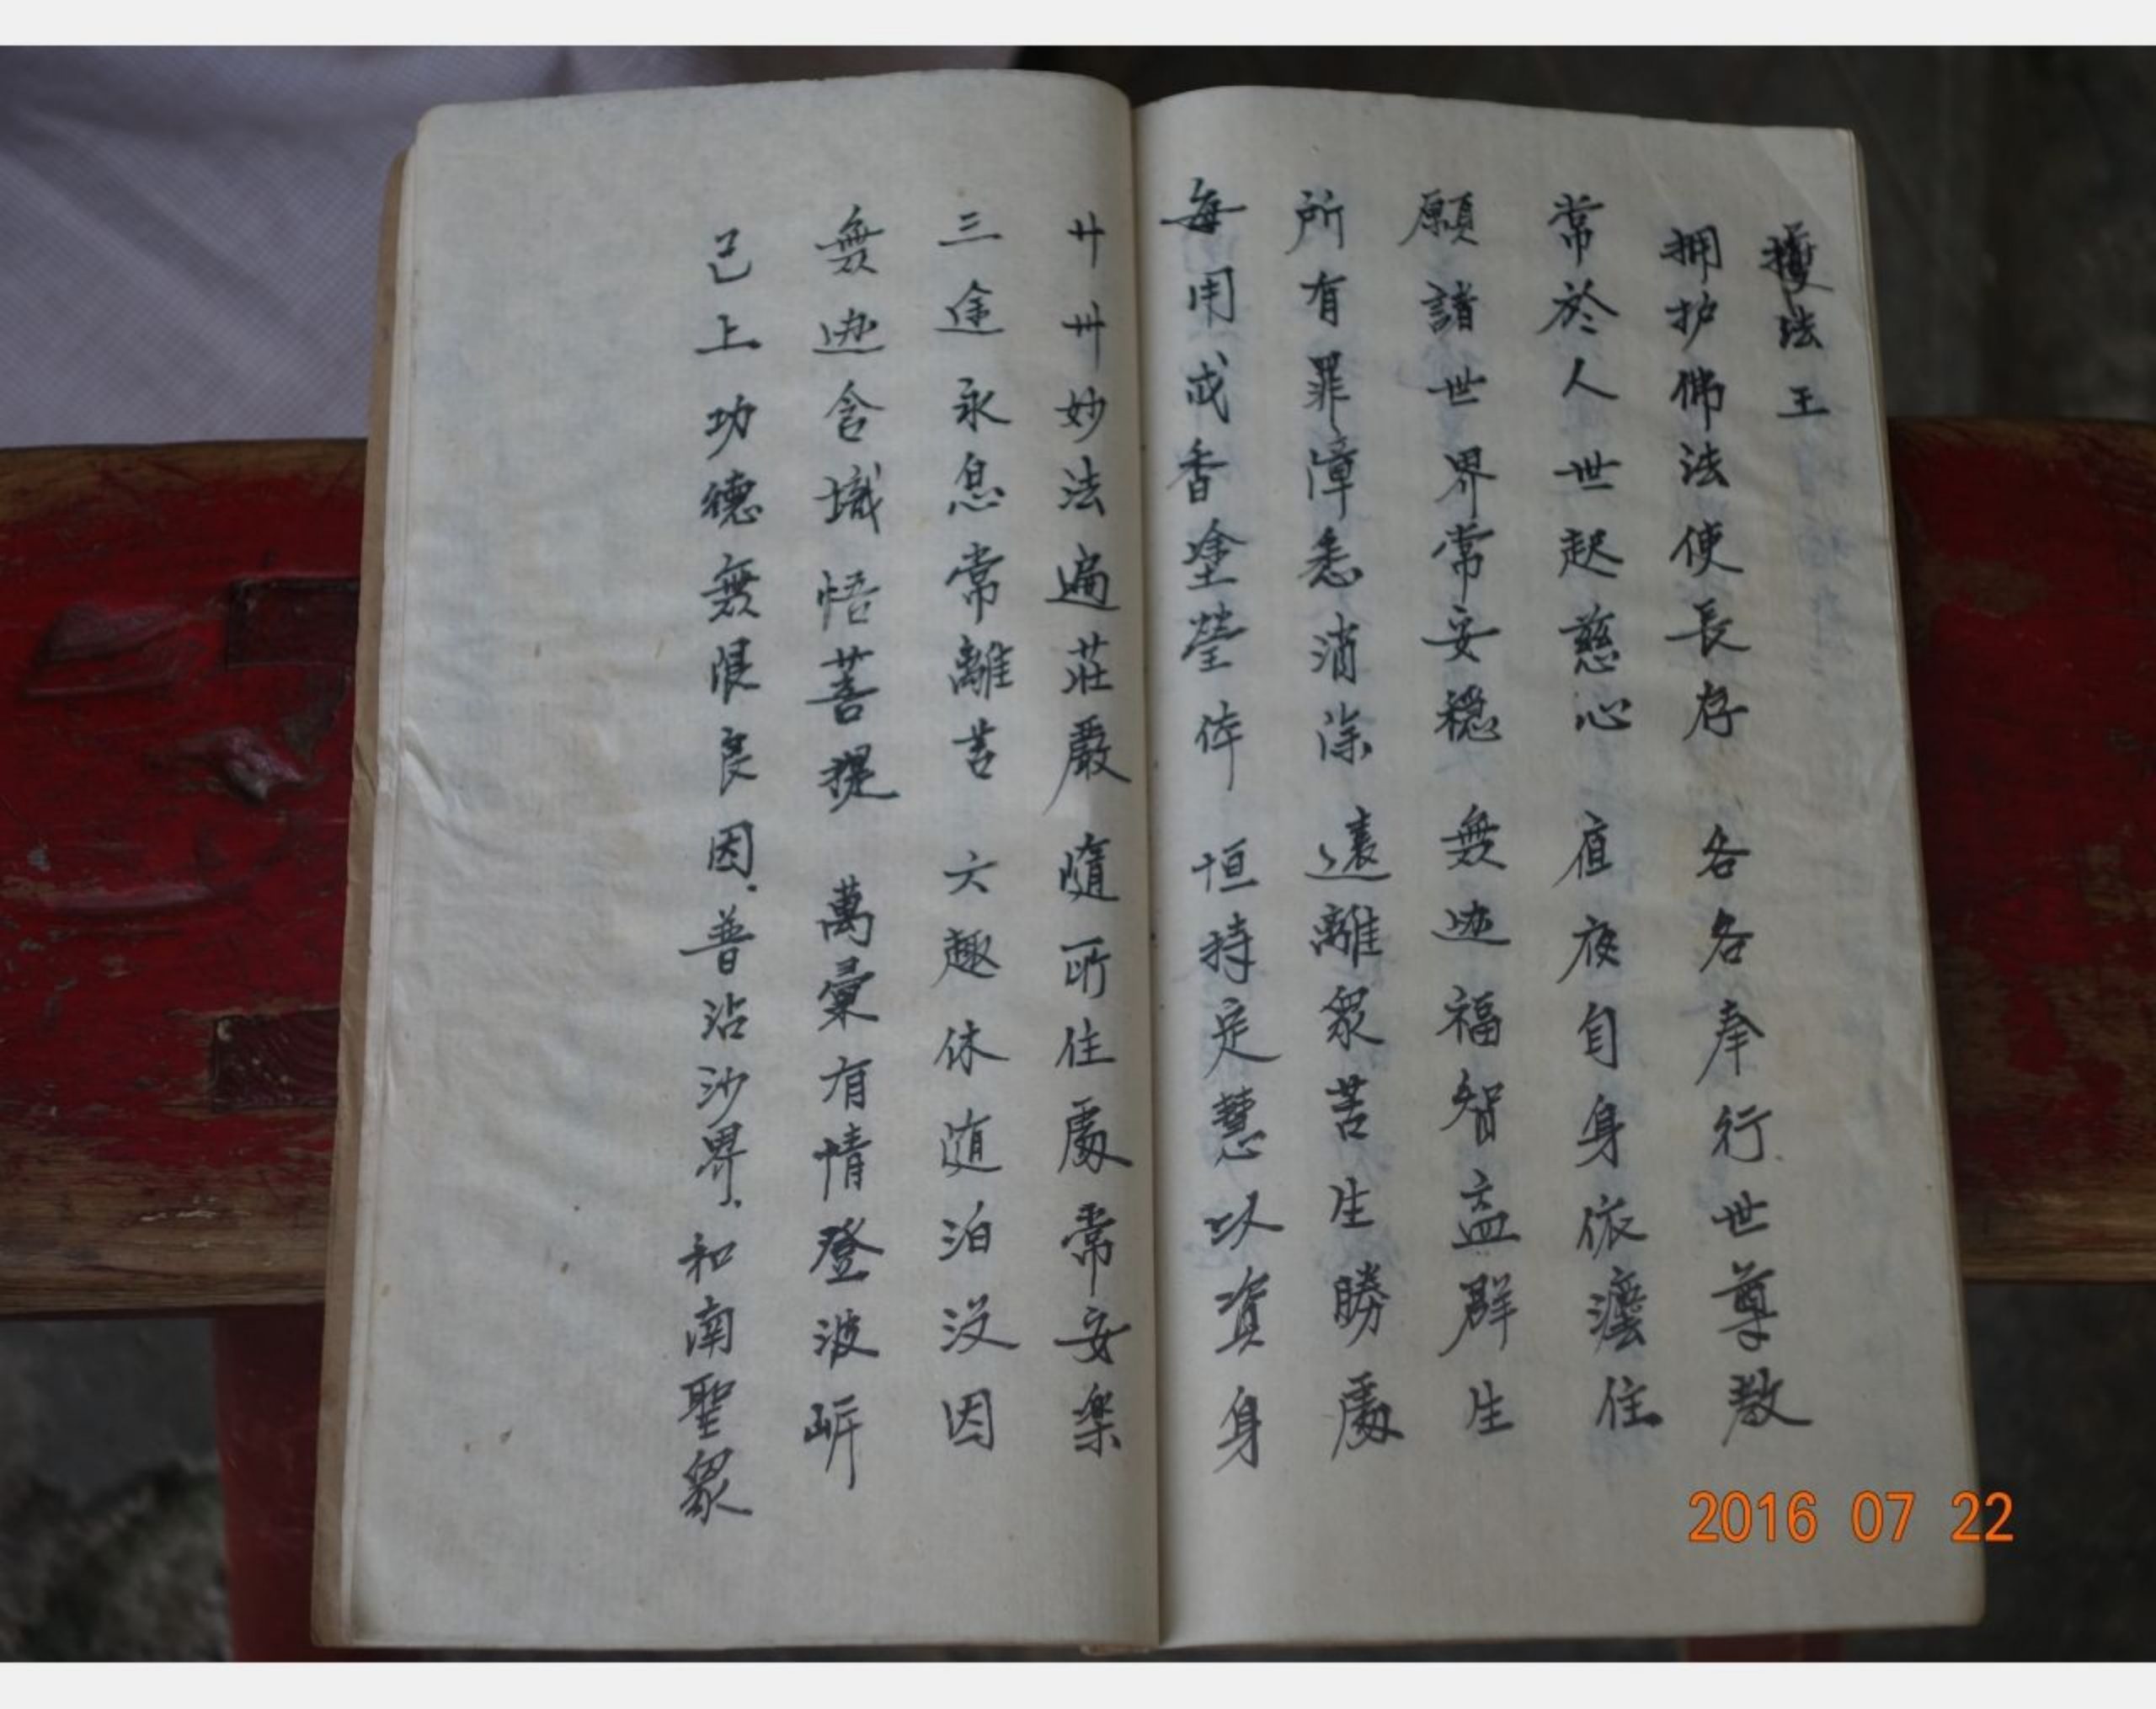 擭法王
拥护佛法使長存 各各奉行世尊教
常於人世起慈心 直夜自身依法住
願諸世界常安穩 無边福智益群生
所有罪障悉消除 遠離眾苦生勝處
每用戒香塗瑩体 恒持定慧以資身
廾卅妙法遍莊嚴 隨所住處常安樂
三途永息常離苦 六趣休随泊没因
無边含識悟菩提 萬彙有情登波岍
已上功德無限良因.普沾沙界.和南聖眾
2016 07 22